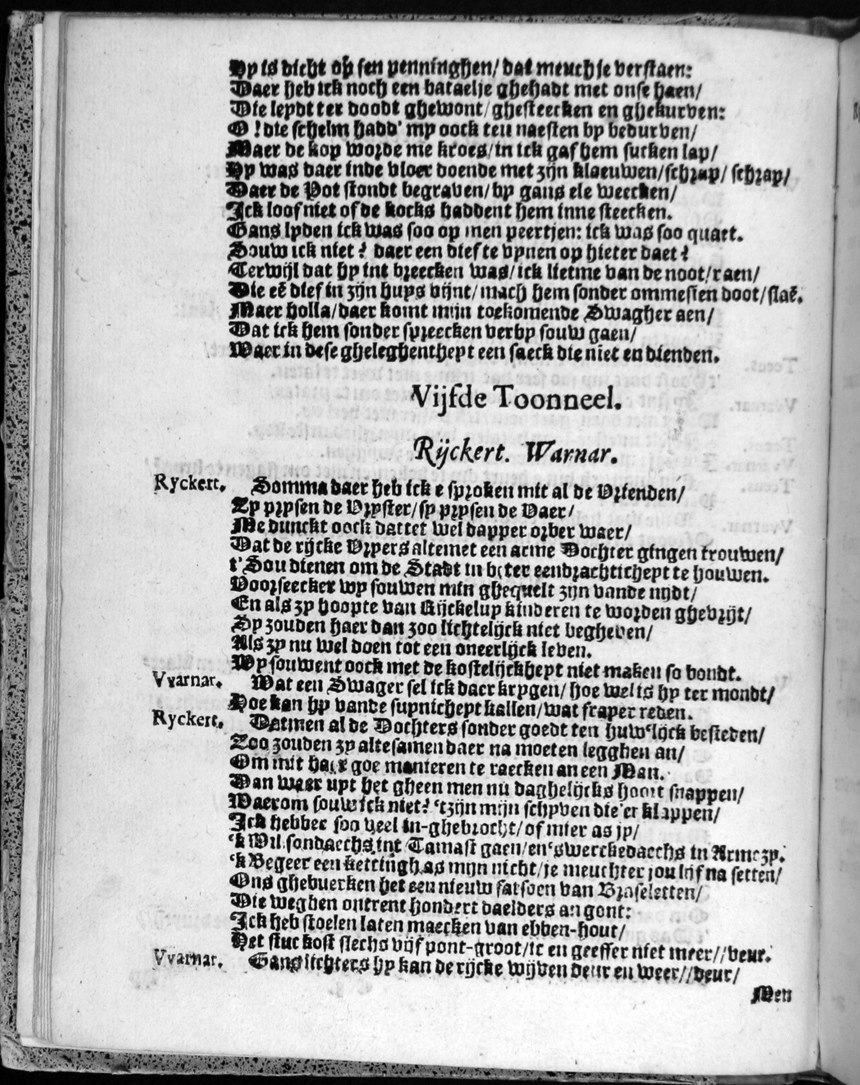 Hy is dicht op sen penninghen/ dat meuch je verstaen:
Daer heb ick noch een bataelje ghehadt met onse haen/
Die leydt ter doodt ghewont/ ghesteecken en ghekurven:
O! die schelm hadd' my oock ten naesten by bedurven/
Maer de kop worde me kroes/ in ick gaf hem sucken lap/
Hy was daer inde vloer doende met zijn klaeuwen/ schrap/ schrap/
Daer de Pot stondt begraven/ by gans ele weecken/
Ick loof niet of de kocks haddent hem inne steecken.
Gans lyden ick was soo op men peertjen: ick was soo quaet.
Souw ick niet? daer een dief te vynen op hieter daet?
Terwijl dat hy int breecken was/ ick lietme van de noot/ raen/
Die eē dief in zijn huys vijnt/ mach hem sonder ommesien doot/ slaē.
Maer holla/ daer komt mijn toekomende Swagher aen/
Dat ick hem sonder spreecken verby souw gaen/
Waer in dese gheleghentheyt een saeck die niet en dienden.
Vijfde Toonneel.
Rijckert. Warnar.
Ryckert. Somma daer heb ick e sproken mit al de Vrienden/
Zy prysen de Vryster/ sy prysen de Vaer/
Me dunckt oock dattet wel dapper orber waer/
Dat de rijcke Vryers altemet een arme Dochter gingen trouwen/
t'Sou dienen om de Stadt in beter eendrachticheyt te houwen.
Voorseecker wy souwen min ghequelt zijn vande nijdt/
En als zy hoopte van Rijckeluy kinderen te worden ghevrijt/
Sy zouden haer dan zoo lichtelijck niet begheven/
Als zy nu wel doen tot een oneerlijck leven.
Wy souwent oock met de kostelijckheyt niet maken so bondt.
Vvarnar. Wat een Swager sel ick daer krygen/ hoe wel is hy ter mondt/
Hoe kan hy vande suynicheyt kallen/ wat fraper reden.
Ryckert. Datmen al de Dochters sonder goedt ten huw'lijck besteden/
Zoo zouden zy altesamen daer na moeten legghen an/
Om mit haer goe manieren te raecken an een Man.
Van waer uyt het gheen men nu daghelijcks hoort snappen/
Waerom souw ick niet? 'tzijn mijn schyven die'er klappen/
Ick hebber soo veel in-ghebrocht/ of mier as jy/
'k Wil sondaechs int Tamast gaen/ en 'swerckedaechs in Armozy.
'k Begeer een kettingh as mijn nicht/ je meuchter jou lijf na setten/
Ons ghebuerken het een nieuw fatsoen van Braseletten/
Die weghen ontrent hondert daelders an gont:
Ick heb stoelen laten maecken van ebben-hout/
Het stuc kost slechs vijf pont-groot/ ic en geeffer niet meer// veur.
Vvarnar. Gans lichters hy kan de rijcke wijven deur en weer// deur/
Men